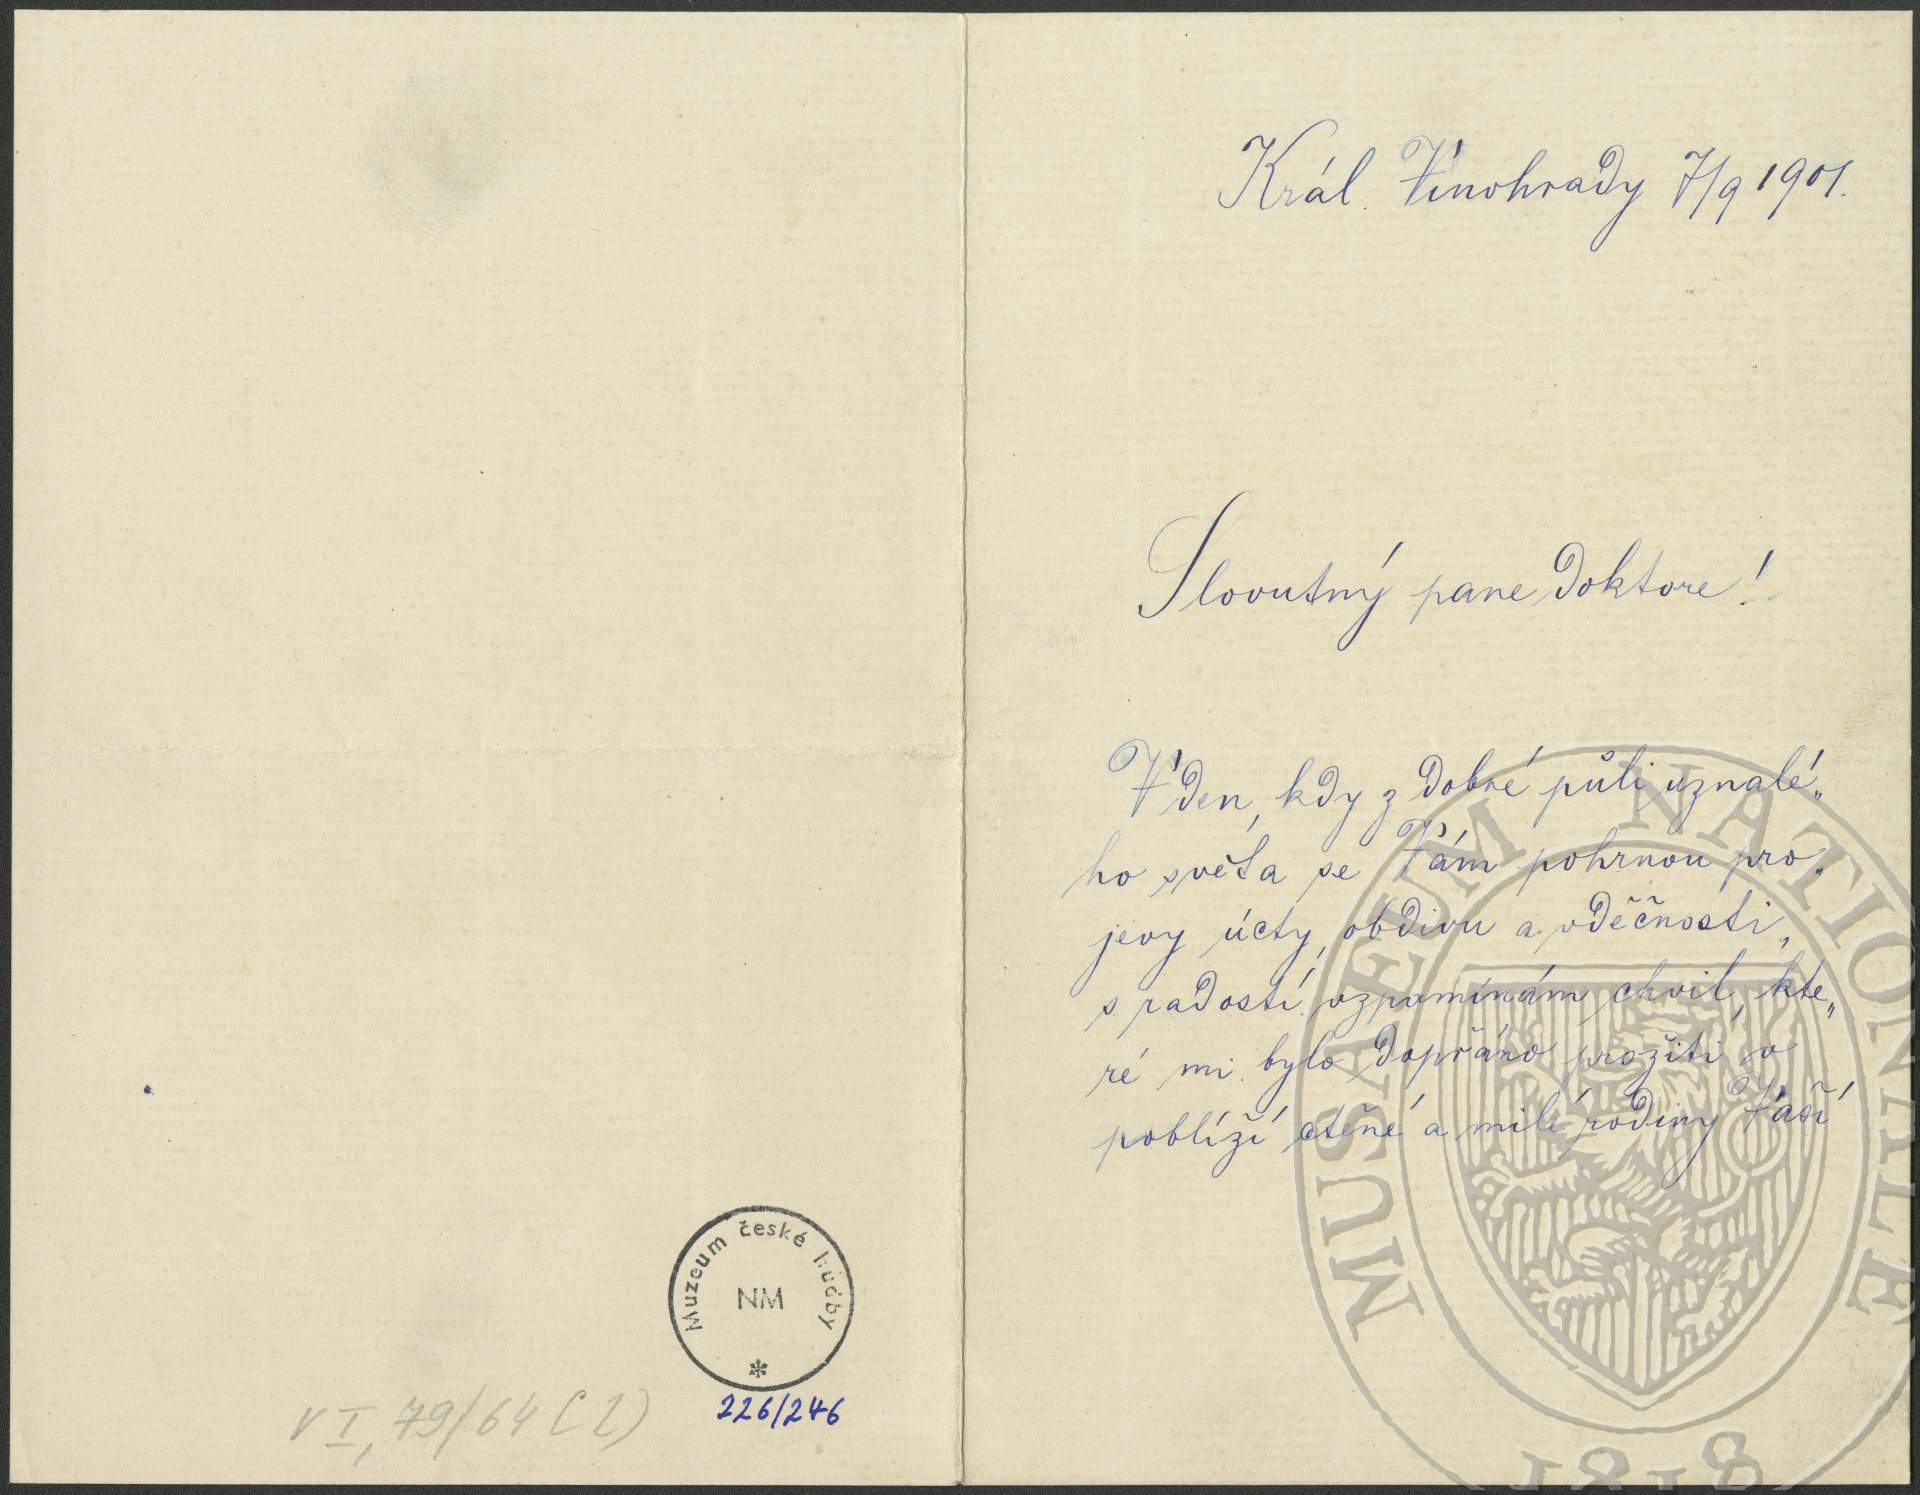 Král. Vinohrady 7/9 1901.
Slovutný pane doktore!
V den, kdy z dobré půli uznalé„
ho světa se Vám pohrnou pro„
jevy úcty, obdivu a vděčnosti,
s radostí vzpomínám chvil, kte„
ré mi bylo dopřáno prožiti v
poblíží ctěné a milé rodiny Vaší
Muzeum české hudby
NM
*
226/246
V I, 79/64 C 2)
MUSAEUM NATIONALE
1818